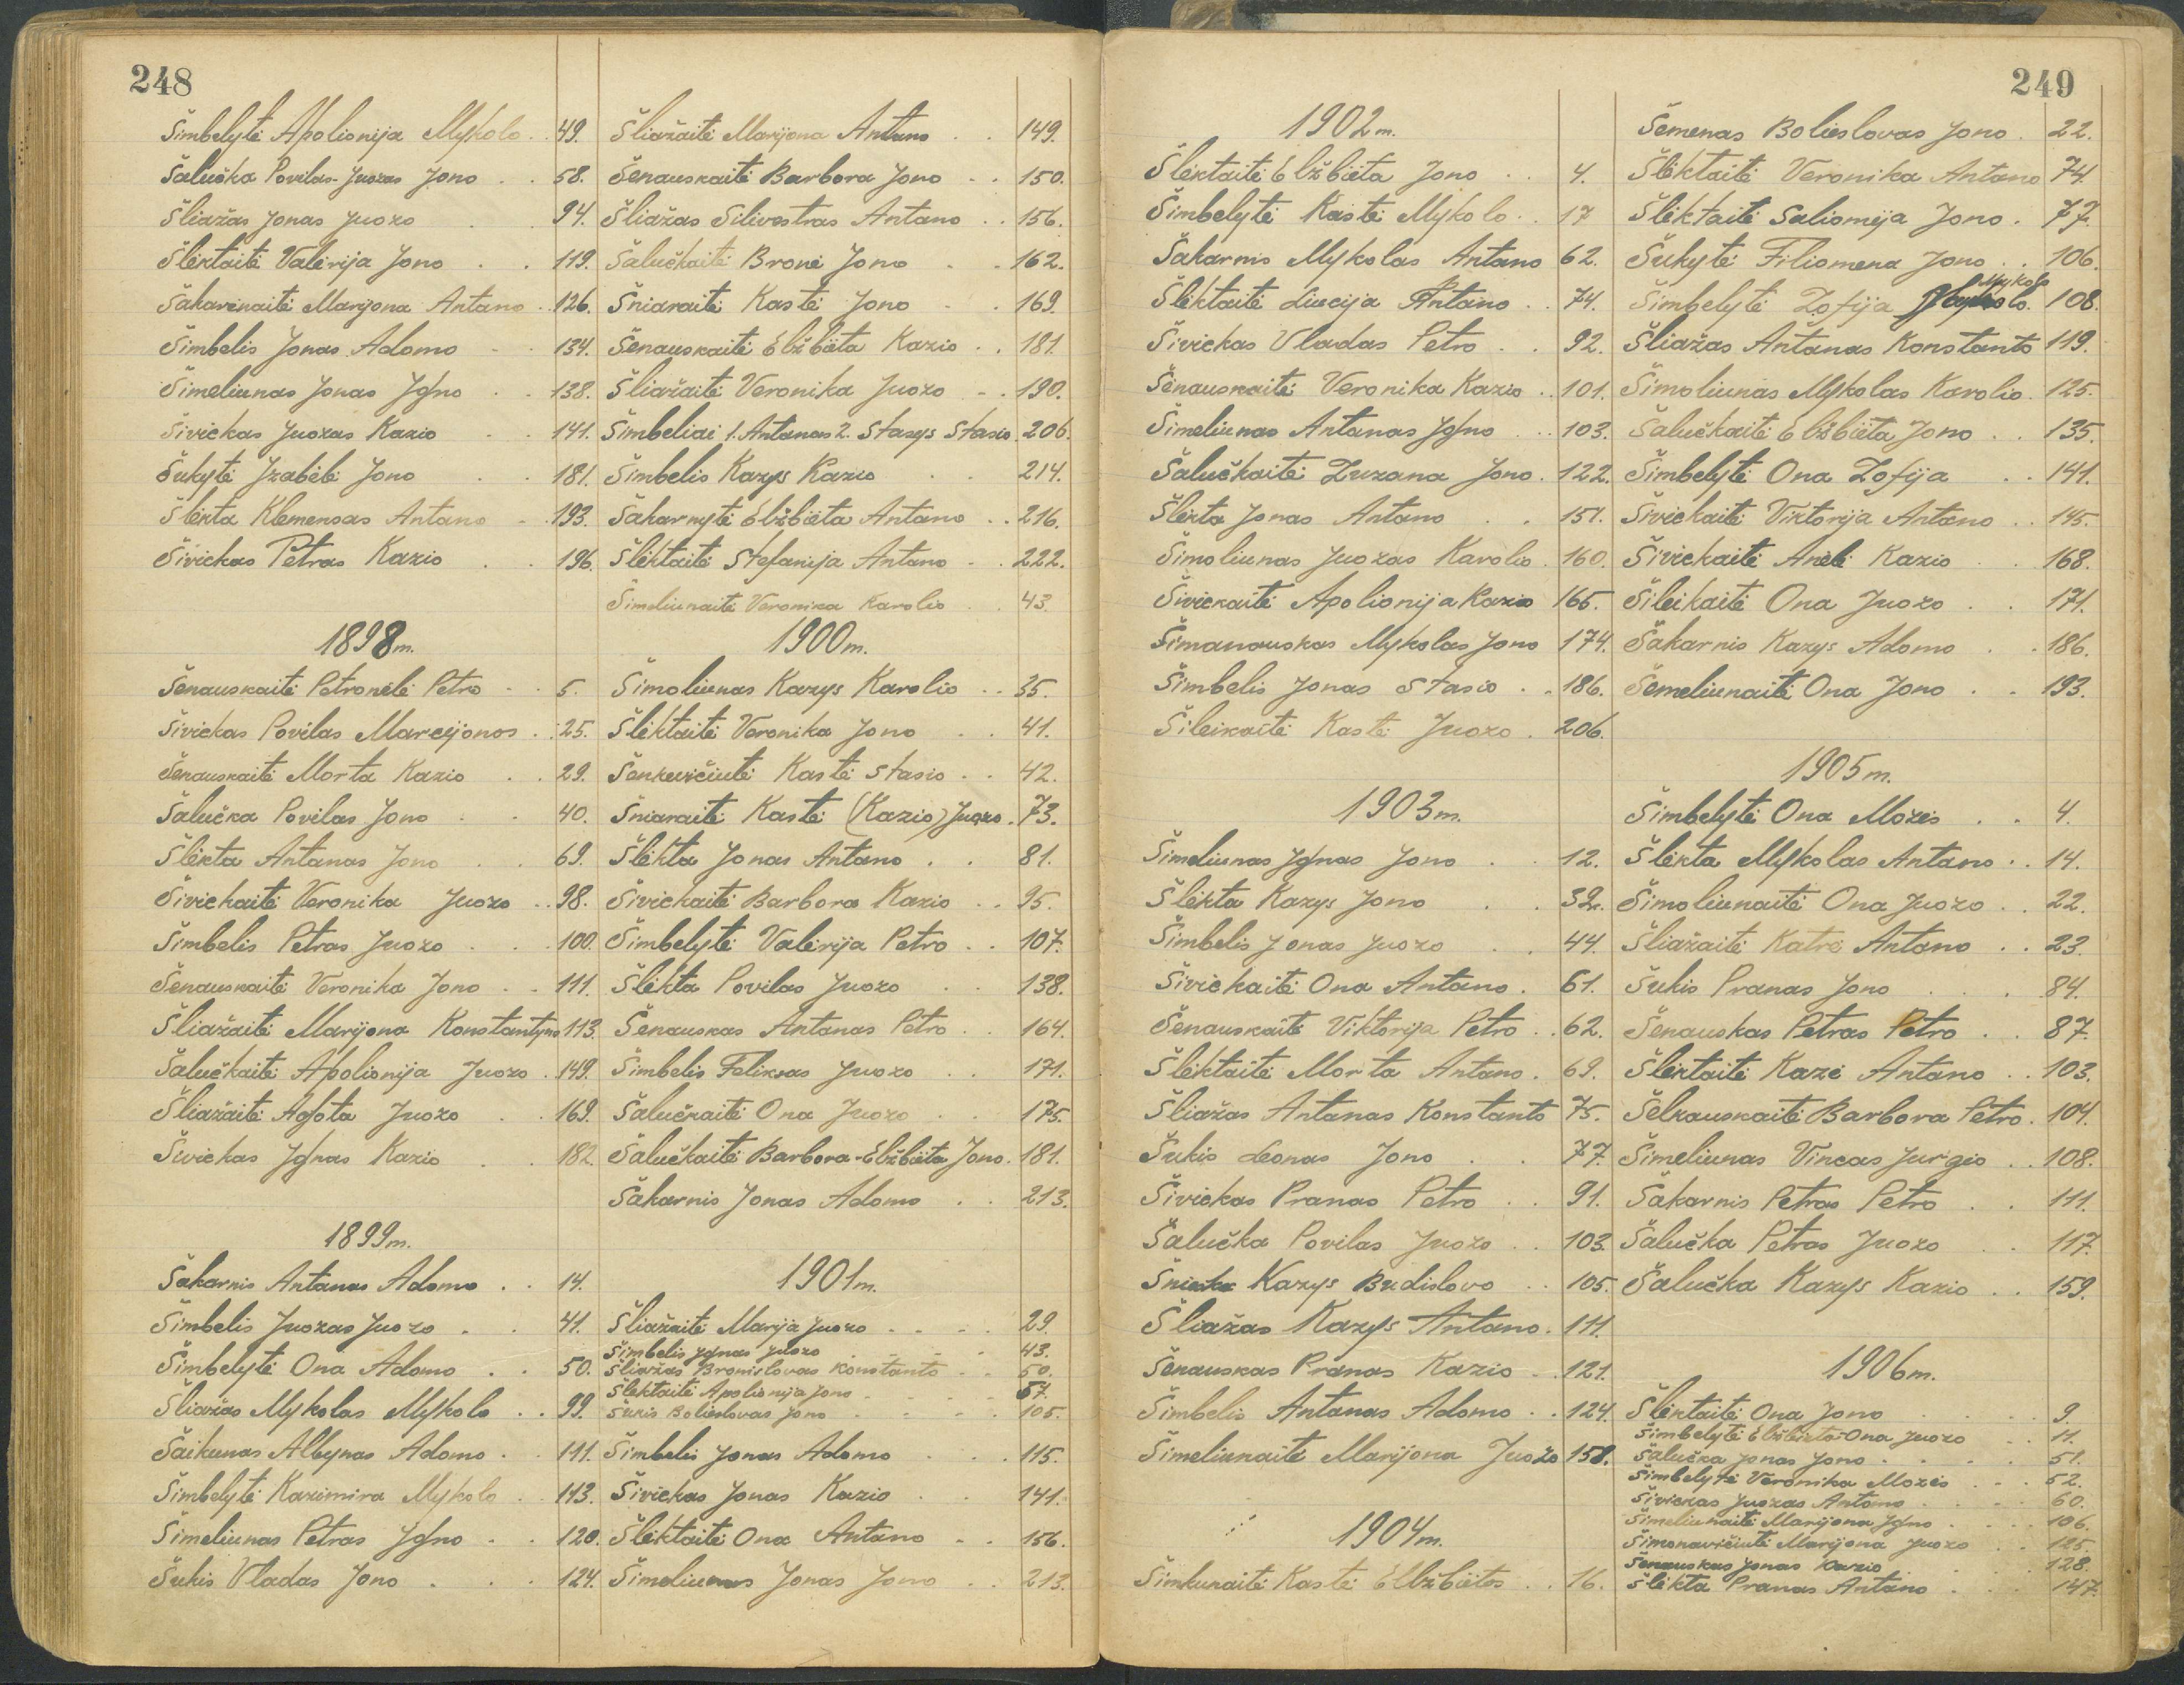 248
Šimbelytė Apolionija Mykolo . . 49.
Šalučka Povilas-Juozas Jono . . 58.
Šliažas Jonas Juozo . . 94.
Šlėktaitė Valėrija Jono . . 119.
Šakarėnaitė Marijona Antano . 126.
Šimbelis Jonas Adomo . . 134.
Šimeliunas Jonas Igno . . 138.
Šivickas Juozas Kazio . . 141.
Šukytė Izabėlė Jono . . 181.
Šlėkta Klemensas Antano . . 193.
Šivickas Petras Kazio . . 196.
1898 m.
Šenauskaitė Petronėlė Petro . . 5.
Šivickas Povilas Marcijonos . . 25.
Šenauskaitė Morta Kazio . . 29.
Šalučka Povilas Jono . . 40.
Šlėkta Antanas Jono . . 69.
Šivickaitė Veronika Juozo . . 98.
Šimbelis Petras Juozo . . . 100.
Šenauskaitė Veronika Jono . . 111.
Šliažaitė Marijona Konstantyno 113.
Šalučkaitė Apolionija Juozo . 149.
Šliažaitė Agota Juozo . . 169.
Šivickas Ignas Kazio . . 182.
1899 m.
Šakarnis Antanas Adomo . . 14.
Šimbelis Juozas Juozo . . 41.
Šimbelytė Ona Adomo . . 50.
Šliažas Mykolas Mykolo . . 99.
Šaikunas Albynas Adomo . . 111.
Šimbelytė Kazimira Mykolo . . 113.
Šimeliunas Petras Igno . . 120.
Šukis Vladas Jono . . . 124.
Šliažaitė Marijona Antano . . 149.
Šenauskaitė Barbora Jono . . 150.
Šliažas Silivestras Antano . . 156.
Šalučkaitė Bronė Jono . . 162.
Šniaraitė Kastė Jono . . 169.
Šenauskaitė Elžbieta Kazio . . 181.
Šliažaitė Veronika Juozo . . 190.
Šimbeliai 1. Antanas 2. Stasys Stasio 206.
Šimbelis Kazys Kazio . . 214.
Šakarnytė Elžbieta Antano . . 216.
Šlėktaitė Stefanija Antano . . 222.
Šimoliunaitė Veronika Karolio . . 43.
1900 m.
Šimoliunas Kazys Karolio . . 35.
Šlėktaitė Veronika Jono . . 41.
Šenkevičiutė Kastė Stasio . . 42.
Šniaraitė Kastė (Kazio) Juozo . 73.
Šlėkta Jonas Antano . . 81.
Šivickaitė Barbora Kazio . . 95.
Šimbelytė Valėrija Petro . . 107.
Šlėkta Povilas Juozo . . 138.
Šenauskas Antanas Petro . . 164.
Šimbelis Feliksas Juozo . . 171.
Šalučkaitė Ona Juozo . . 175.
Šalučkaitė Barbora-Elžbieta Jono . 181.
Šakarnis Jonas Adomo . . 213.
1901 m.
Šliažaitė Marija Juozo . . . . 29.
Šimbelis Ignas Juozo . . . . 43.
Šliažas Bronislovas Konstanto . . 50.
Šlėktaitė Apolionija Jono . . . . 57.
Šukis Bolieslovas Jono . . . . 105.
Šimbelis Jonas Adomo . . . 115.
Šivickas Jonas Kazio . . 141.
Šlėktaitė Ona Antano . . 156.
Šimeliunas Jonas Jono . . 213.
249
1902 m.
Šlėktaitė Elžbieta Jono . . 4.
Šimbelytė Kastė Mykolo . . 17
Šakarnis Mykolas Antano 62.
Šlėktaitė Liucija Antano . . 74.
Šivickas Vladas Petro . . 92.
Šenauskaitė Veronika Kazio . . 101.
Šimeliunas Antanas Igno . . 103.
Šalučkaitė Zuzana Jono . 122.
Šlėkta Jonas Antano . . 151.
Šimoliunas Juozas Karolio . 160.
Šivickaitė Apolionija Kazio 165.
Šimanauskas Mykolas Jono 174.
Šimbelis Jonas Stasio . . 186.
Šileikaitė Kastė Juozo . 206.
1903 m.
Šimeliunas Ignas Jono . . 12.
Šlėkta Kazys Jono . . 32.
Šimbelis Jonas Juozo . . 44.
Šivickaitė Ona Antano . 61.
Šenauskaitė Viktorija Petro . . 62.
Šlėktaitė Morta Antano . 69.
Šliažas Antanas Konstanto 75.
Šukis Leonas Jono . . 77.
Šivickas Pranas Petro . . 91.
Šalučka Povilas Juozo . . 103.
Kazys Budislovo . . 105.
Šliažas Kazys Antano . 111.
Šenauskas Pranas Kazio . . 121.
Šimbelis Antanas Adomo . . 124.
Šimeliunaitė Marijona Juozo 158.
1904 m.
Šimkunaitė Kastė Elžbietos . . 16.
Šemenas Bolieslovas Jono . 22.
Šlėktaitė Veronika Antano 74.
Šlėktaitė Saliomėja Jono . 77.
Šukytė Filiomena Jono . . 106.
Mykolo
Šimbelytė Zofija 108.
Šliažas Antanas Konstanto 119.
Šimoliunas Mykolas Karolio . 125.
Šalučkaitė Elžbieta Jono . . 135.
Šimbelytė Ona Zofija . . 141.
Šivickaitė Viktorija Antano . . 145.
Šivickaitė Anėlė Kazio . . 168.
Šileikaitė Ona Juozo . . 171.
Šakarnis Kazys Adomo . . 186.
Šemeliunaitė Ona Jono . . 193.
1905 m.
Šimbelytė Ona Mozės . . 4.
Šlėkta Mykolas Antano . . 14.
Šimoliunaitė Ona Juozo . . 22.
Šliažaitė Katrė Antano . . 23.
Šukis Pranas Jono . . . 84.
Šenauskas Petras Petro . . 87.
Šlėktaitė Kazė Antano . . 103.
Šelkauskaitė Barbora Petro . 104.
Šimeliunas Vincas Jurgio . . 108.
Šakarnis Petras Petro . . 111.
Šalučka Petras Juozo . . 117.
Šalučka Kazys Kazio . . 159.
1906 m.
Šlėktaitė Ona Jono . . . . 9.
Šimbelytė Elžbieta-Ona Juozo . . 11.
Šalučka Jonas Jono . . . . 51.
Šimbelytė Veronika Mozės . . . 52.
Šivickas Juozas Antano . . . . 60.
Šimeliunaitė Marijona Igno . . . . 106.
Šimonavičiutė Marijona Juozo . . 125.
Šenauskas Jonas Kazio . . . . 128.
Šlėkta Pranas Antano . . . 147.